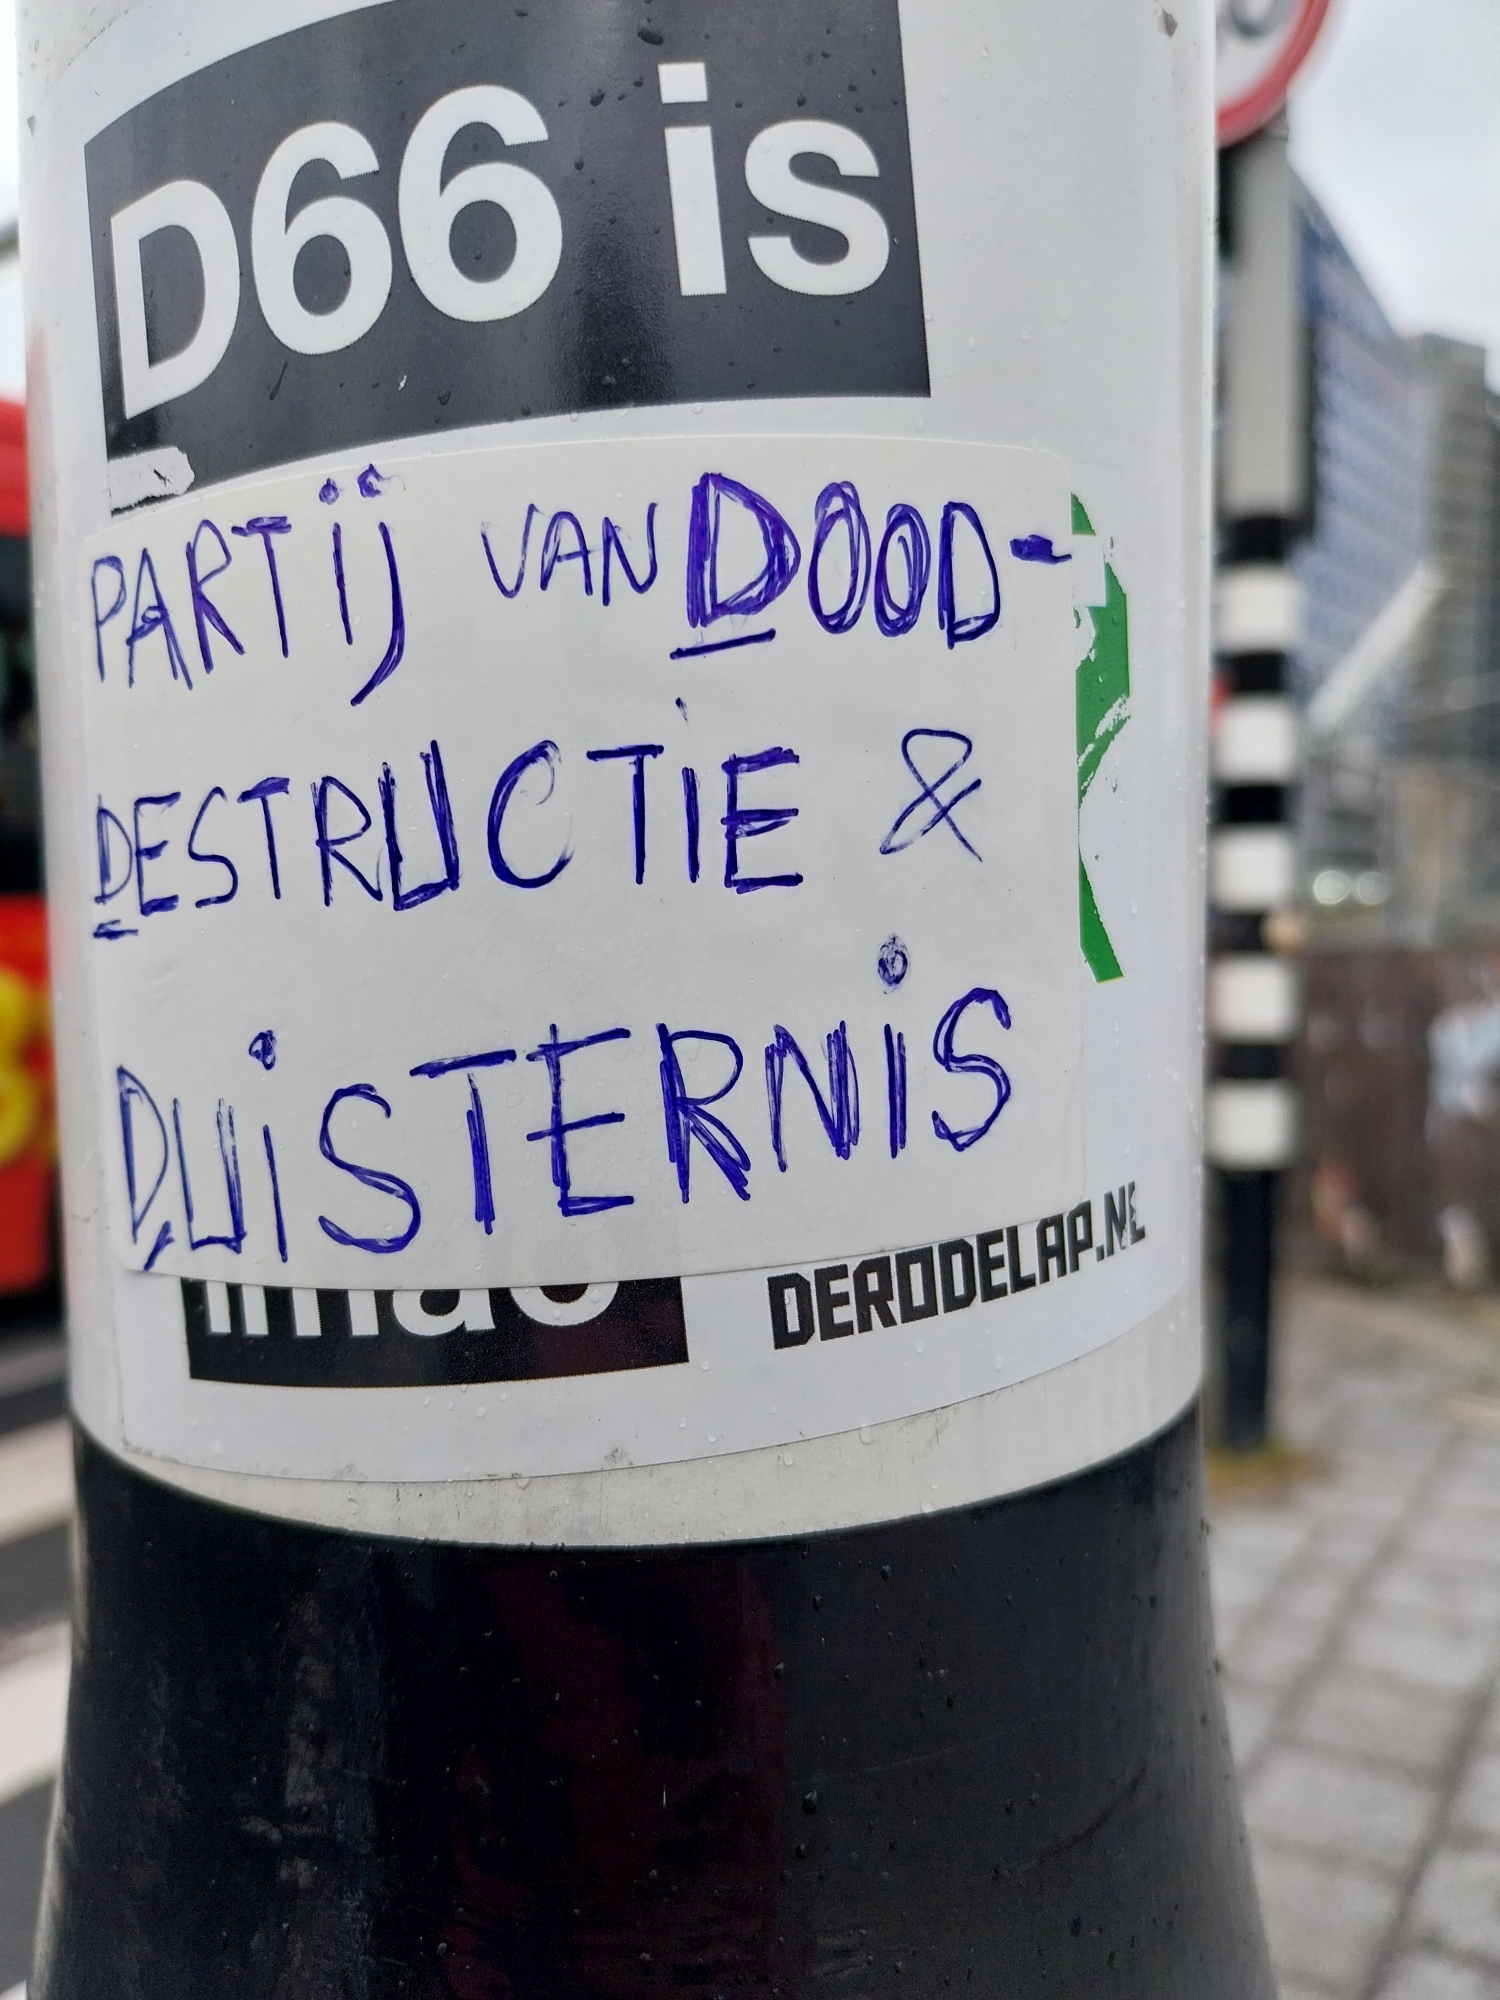 D66 is
PARTIJ VAN DOOD-
DESTRUCTIE &
DUiSTERNiS
DERODELAP.NL